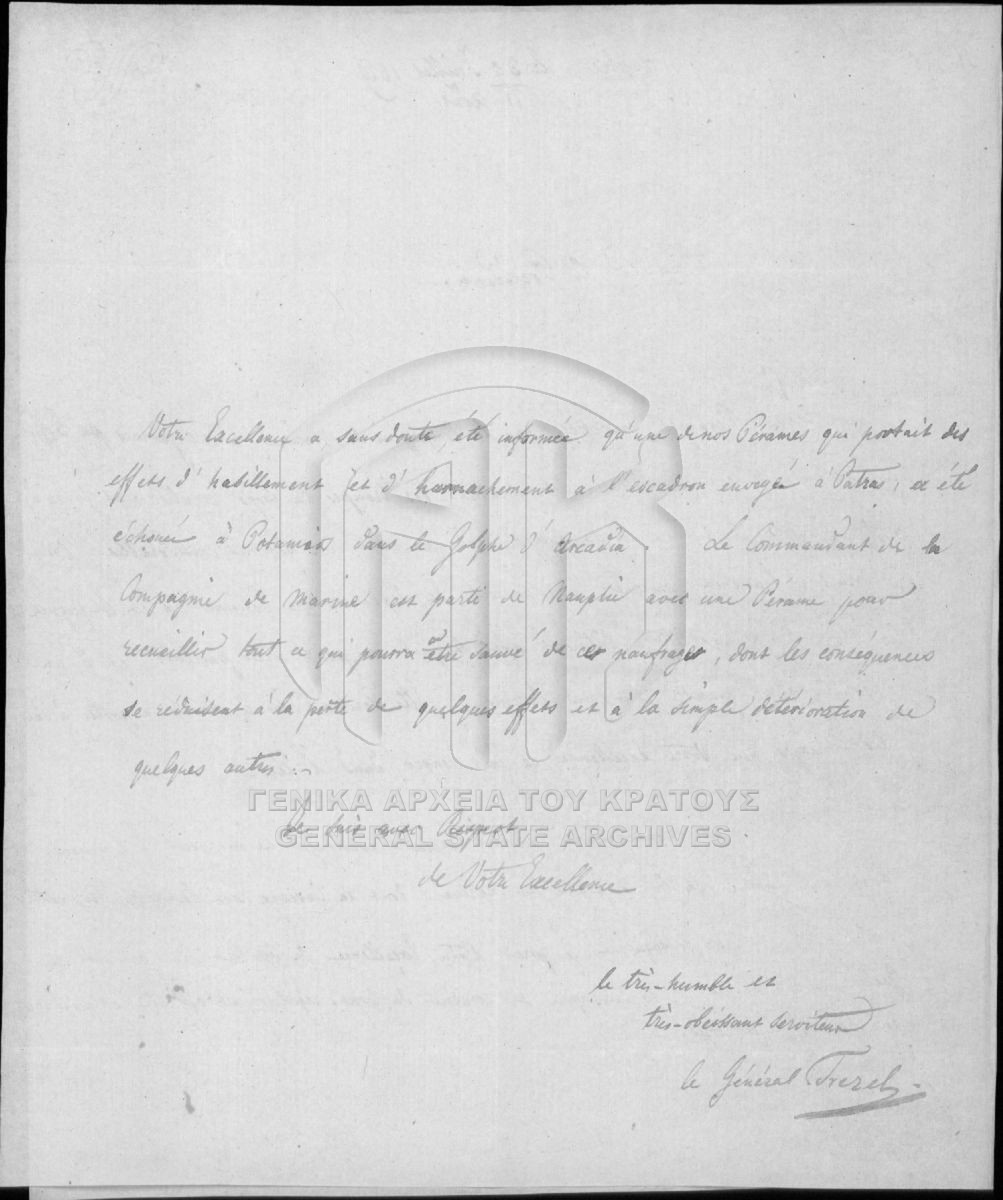 Votre Excellence a sans doute été informée qu'une de nos Pérames qui portait des
effets d'habillement et d'harnachement à l'escadron envoyé à Patras, a été
échouée à Potamias dans le Golphe d'Arcadia. Le Commandant de la
Compagnie de Marine est parti de Nauplie avec une Pérame pour
recueillir tout ce qui pourra être sauvé de ces naufrages, dont les conséquences
se réduisent à la perte de quelques effets et à la simple détérioration de
quelques autres.
ΓΕΝΙΚΑ ΑΡΧΕΙΑ ΤΟΥ ΚΡΑΤΟΥΣ
Je suis avec Respect
GENERAL STATE ARCHIVES
de Votre Excellence
le très-humble et
très-obéissant serviteur
le Général Trezel